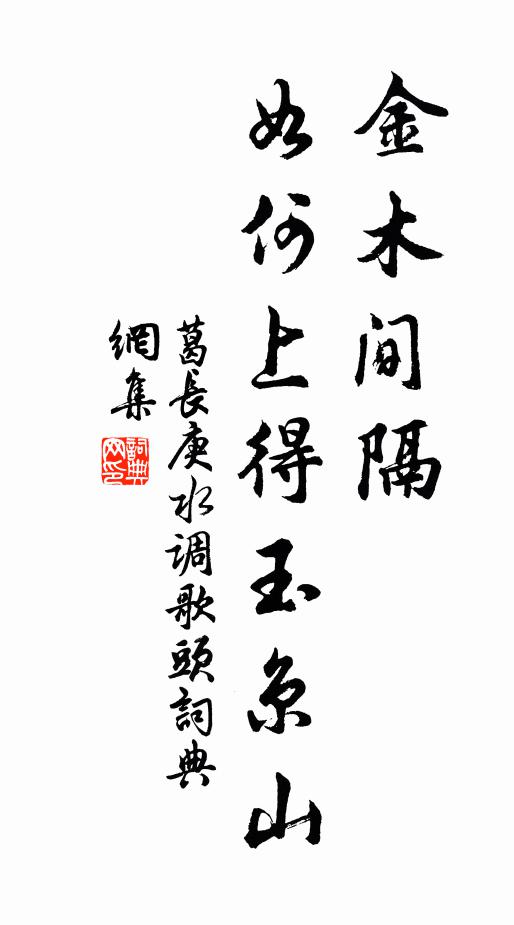 金木间隔
如何上得玉京山
葛長庚水调歌頭詞典
網集
詞典网印